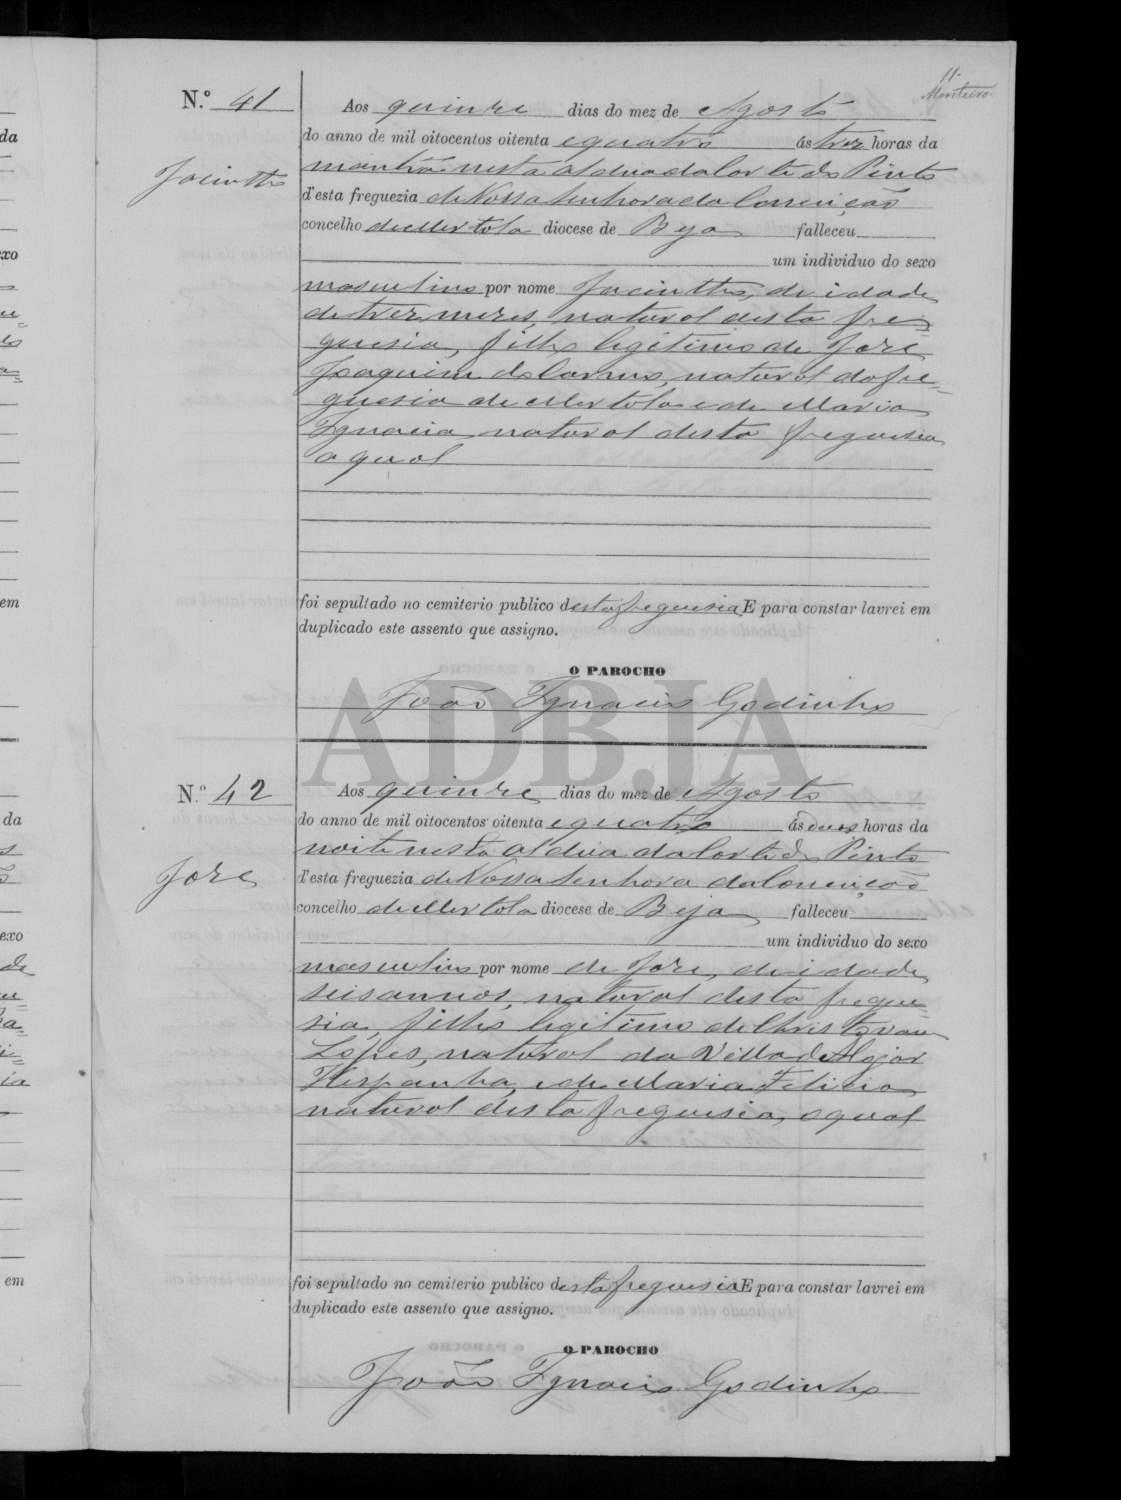 11.
Monteiro
N.º 41
Jacintho
Aos quinze dias do mez de Agosto
do anno de mil oitocentos oitenta e quatro ás trez horas da
manhã nesta aldeia da Corte do Pinto
d'esta freguezia de Nossa Senhora da Conceição
concelho de Mertola diocese de Beja falleceu
um individuo do sexo
masculino por nome Jacintho, de idade
de trez mezes, natural desta fre=
guesia, filho legitimo de José
Joaquim do Carmo, natural da fre=
guesia de Mertola e de Maria
Ignacia, natural desta freguesia
o qual
foi sepultado no cemiterio publico desta freguesia E para constar lavrei em
duplicado este assento que assigno.
O PAROCHO
João Ignacio Godinho
ADBJA
N.º 42
José
Aos quinze dias do mez de Agosto
do anno de mil oitocentos oitenta e quatro ás duas horas da
noite nesta aldeia da Corte do Pinto
d'esta freguezia de Nossa Senhora da Conceição
concelho de Mertola diocese de Beja falleceu
um individuo do sexo
masculino por nome de José, de idade
seis annos, natural desta fregue=
sia, filho legitimo de Christovam
Lopes, natural da Villa de
Hespanha, e de Maria Felicia,
natural desta freguesia, o qual
foi sepultado no cemiterio publico desta freguesia E para constar lavrei em
duplicado este assento que assigno.
O PAROCHO
João Ignacio Godinho